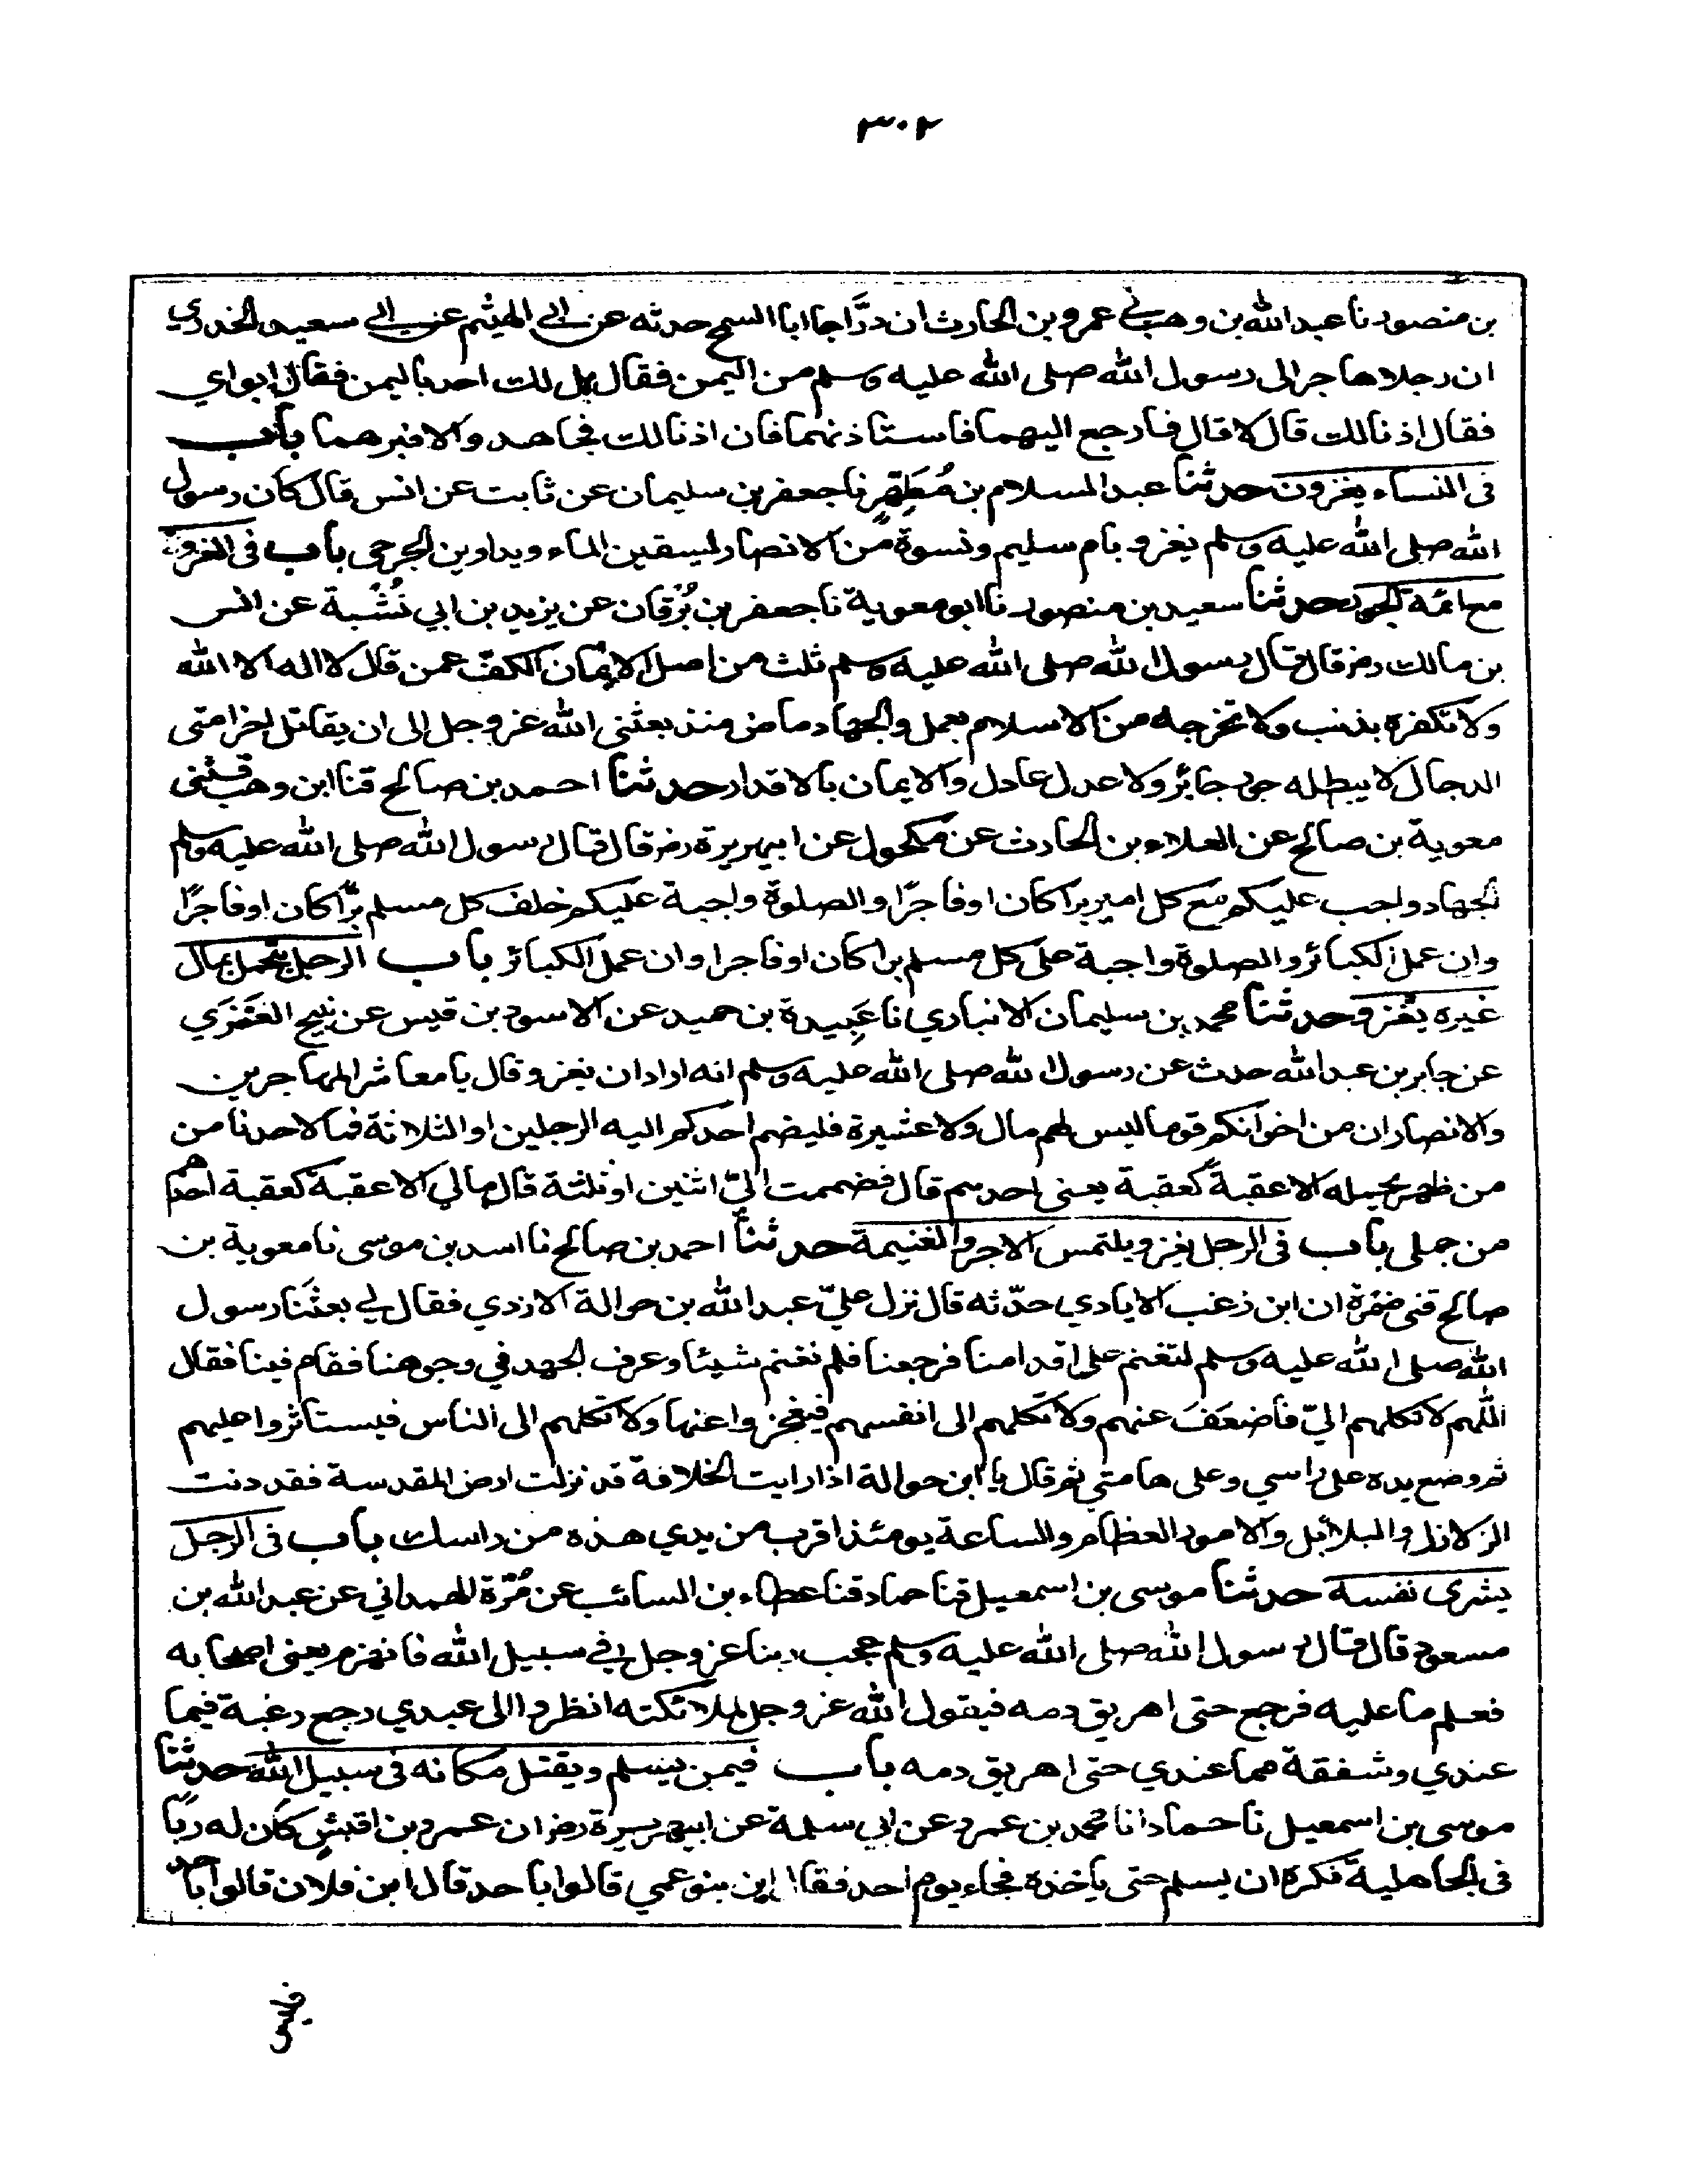 ٣٠٢
بن منصور نا عبد الله بن وهب ني عمرو بن الحارث ان درَّاجا ابا السمح حدثه عن ابي الهيثم عن ابي سعيد الخدري
ان رجلا هاجر الى رسول الله صلى الله عليه وسلم من اليمن فقال هل لك احد باليمن فقال ابواي
فقال اذنا لك قال لا قال فارجع اليهما فاستاذنهما فان اذنا لك فجاهد والا فبرهما باب
فى النساء يغزون حدثنا عبد السلام بن مُطَهَّرٍ نا جعفر بن سليمان عن ثابت عن انس قال كان رسول
الله صلى الله عليه وسلم يغزو بام سليم ونسوة من الانصار ليسقين الماء ويداوين الجرحى باب فى الغزو
مع ائمة الجور حدثنا سعيد بن منصور نا ابو معوية نا جعفر بن بُرْقان عن يزيد بن ابي نُشْبة عن انس
بن مالك رضر قال قال رسول الله صلى الله عليه وسلم ثلث من اصل الايمان الكفّ عمن قال لا اله الا الله
ولا تكفره بذنب ولا تخرجه من الاسلام بعمل والجهاد ماض منذ بعثني الله عز وجل الى ان يقاتل اخر امتى
الدجال لا يبطله جور جائر ولا عدل عادل والايمان بالاقدار حدثنا احمد بن صالح قثنا ابن وهب قثنى
معوية بن صالح عن العلاء بن الحارث عن مكحول عن ابيهريرة رضر قال قال رسول الله صلى الله عليه وسلم
الجهاد واجب عليكم مع كل امير برا كان او فاجرًا والصلوة واجبة عليكم خلف كل مسلم برًّا كان او فاجرًا
وان عمل الكبائر والصلوة واجبة على كل مسلم برا كان او فاجرا وان عمل الكبائر باب الرجل يتحمل بمال
غيره يغزو حدثنا محمد بن سليمان الانباري نا عَبِيدة بن حميد عن الاسود بن قيس عن نبيح العَنَزي
عن جابر بن عبد الله حدث عن رسول الله صلى الله عليه وسلم انه اراد ان يغزو قال يا معاشر المهاجرين
والانصار ان من اخوانكم قوما ليس لهم مال ولا عشيرة فليضم احدكم اليه الرجلين او الثلاثة فما لاحدنا من
من ظهر يحمله الا عقبةً كعقبة يعنى احدهم قال فضممت اليّ اثنين او ثلثة قال ما لي الا عقبة كعقبة احدهم
من جملى باب فى الرجل يغزو يلتمس الاجر والغنيمة حدثنا احمد بن صالح نا اسد بن موسى نا معوية بن
صالح قثنى ضمرة ان ابن زغب الايادي حدّثه قال نزل عليّ عبد الله بن حوالة الازدي فقال لي بعثَنا رسول
الله صلى الله عليه وسلم لنغنم على اقدامنا فرجعنا فلم نغنم شيئا وعرف الجهد في وجوهنا فقام فينا فقال
اللهم لا تكلهم اليّ فاضعَفَ عنهم ولا تكلهم الى انفسهم فيعجزوا عنها ولا تكلهم الى الناس فيستاثروا عليهم
ثم وضع يده على راسي وعلى هامتي ثم قال يا ابن حوالة اذا رايت الخلافة قد نزلت ارض المقدسة فقد دنت
الزلازل والبلابل والامور العظام والساعة يومئذ اقرب من يدي هذه من راسك باب فى الرجل
يشرى نفسه حدثنا موسى بن اسمعيل قثنا حماد قثنا عطاء بن السائب عن مُرّة الهمداني عن عبد الله بن
مسعود قال قال رسول الله صلى الله عليه وسلم عجب ربنا عز وجل في سبيل الله فانهزم يعنى اصحابه
فعلم ما عليه فرجع حتى اهريق دمه فيقول الله عز وجل لملائكته انظروا الى عبدي رجع رغبة فيما
عندي وشفقة مما عندي حتى اهريق دمه باب فيمن يسلم ويقتل مكانه فى سبيل الله حدثنا
موسى بن اسمعيل نا حماد انا محمد بن عمرو عن ابي سلمة عن ابيهريرة رضر ان عمرو بن اقيش كان له ربًا
فى الجاهلية فكره ان يسلم حتى ياخذه فجاء يوم احد فقال اين بنو عمي قالوا باحد قال ابن فلان قالوا باحد